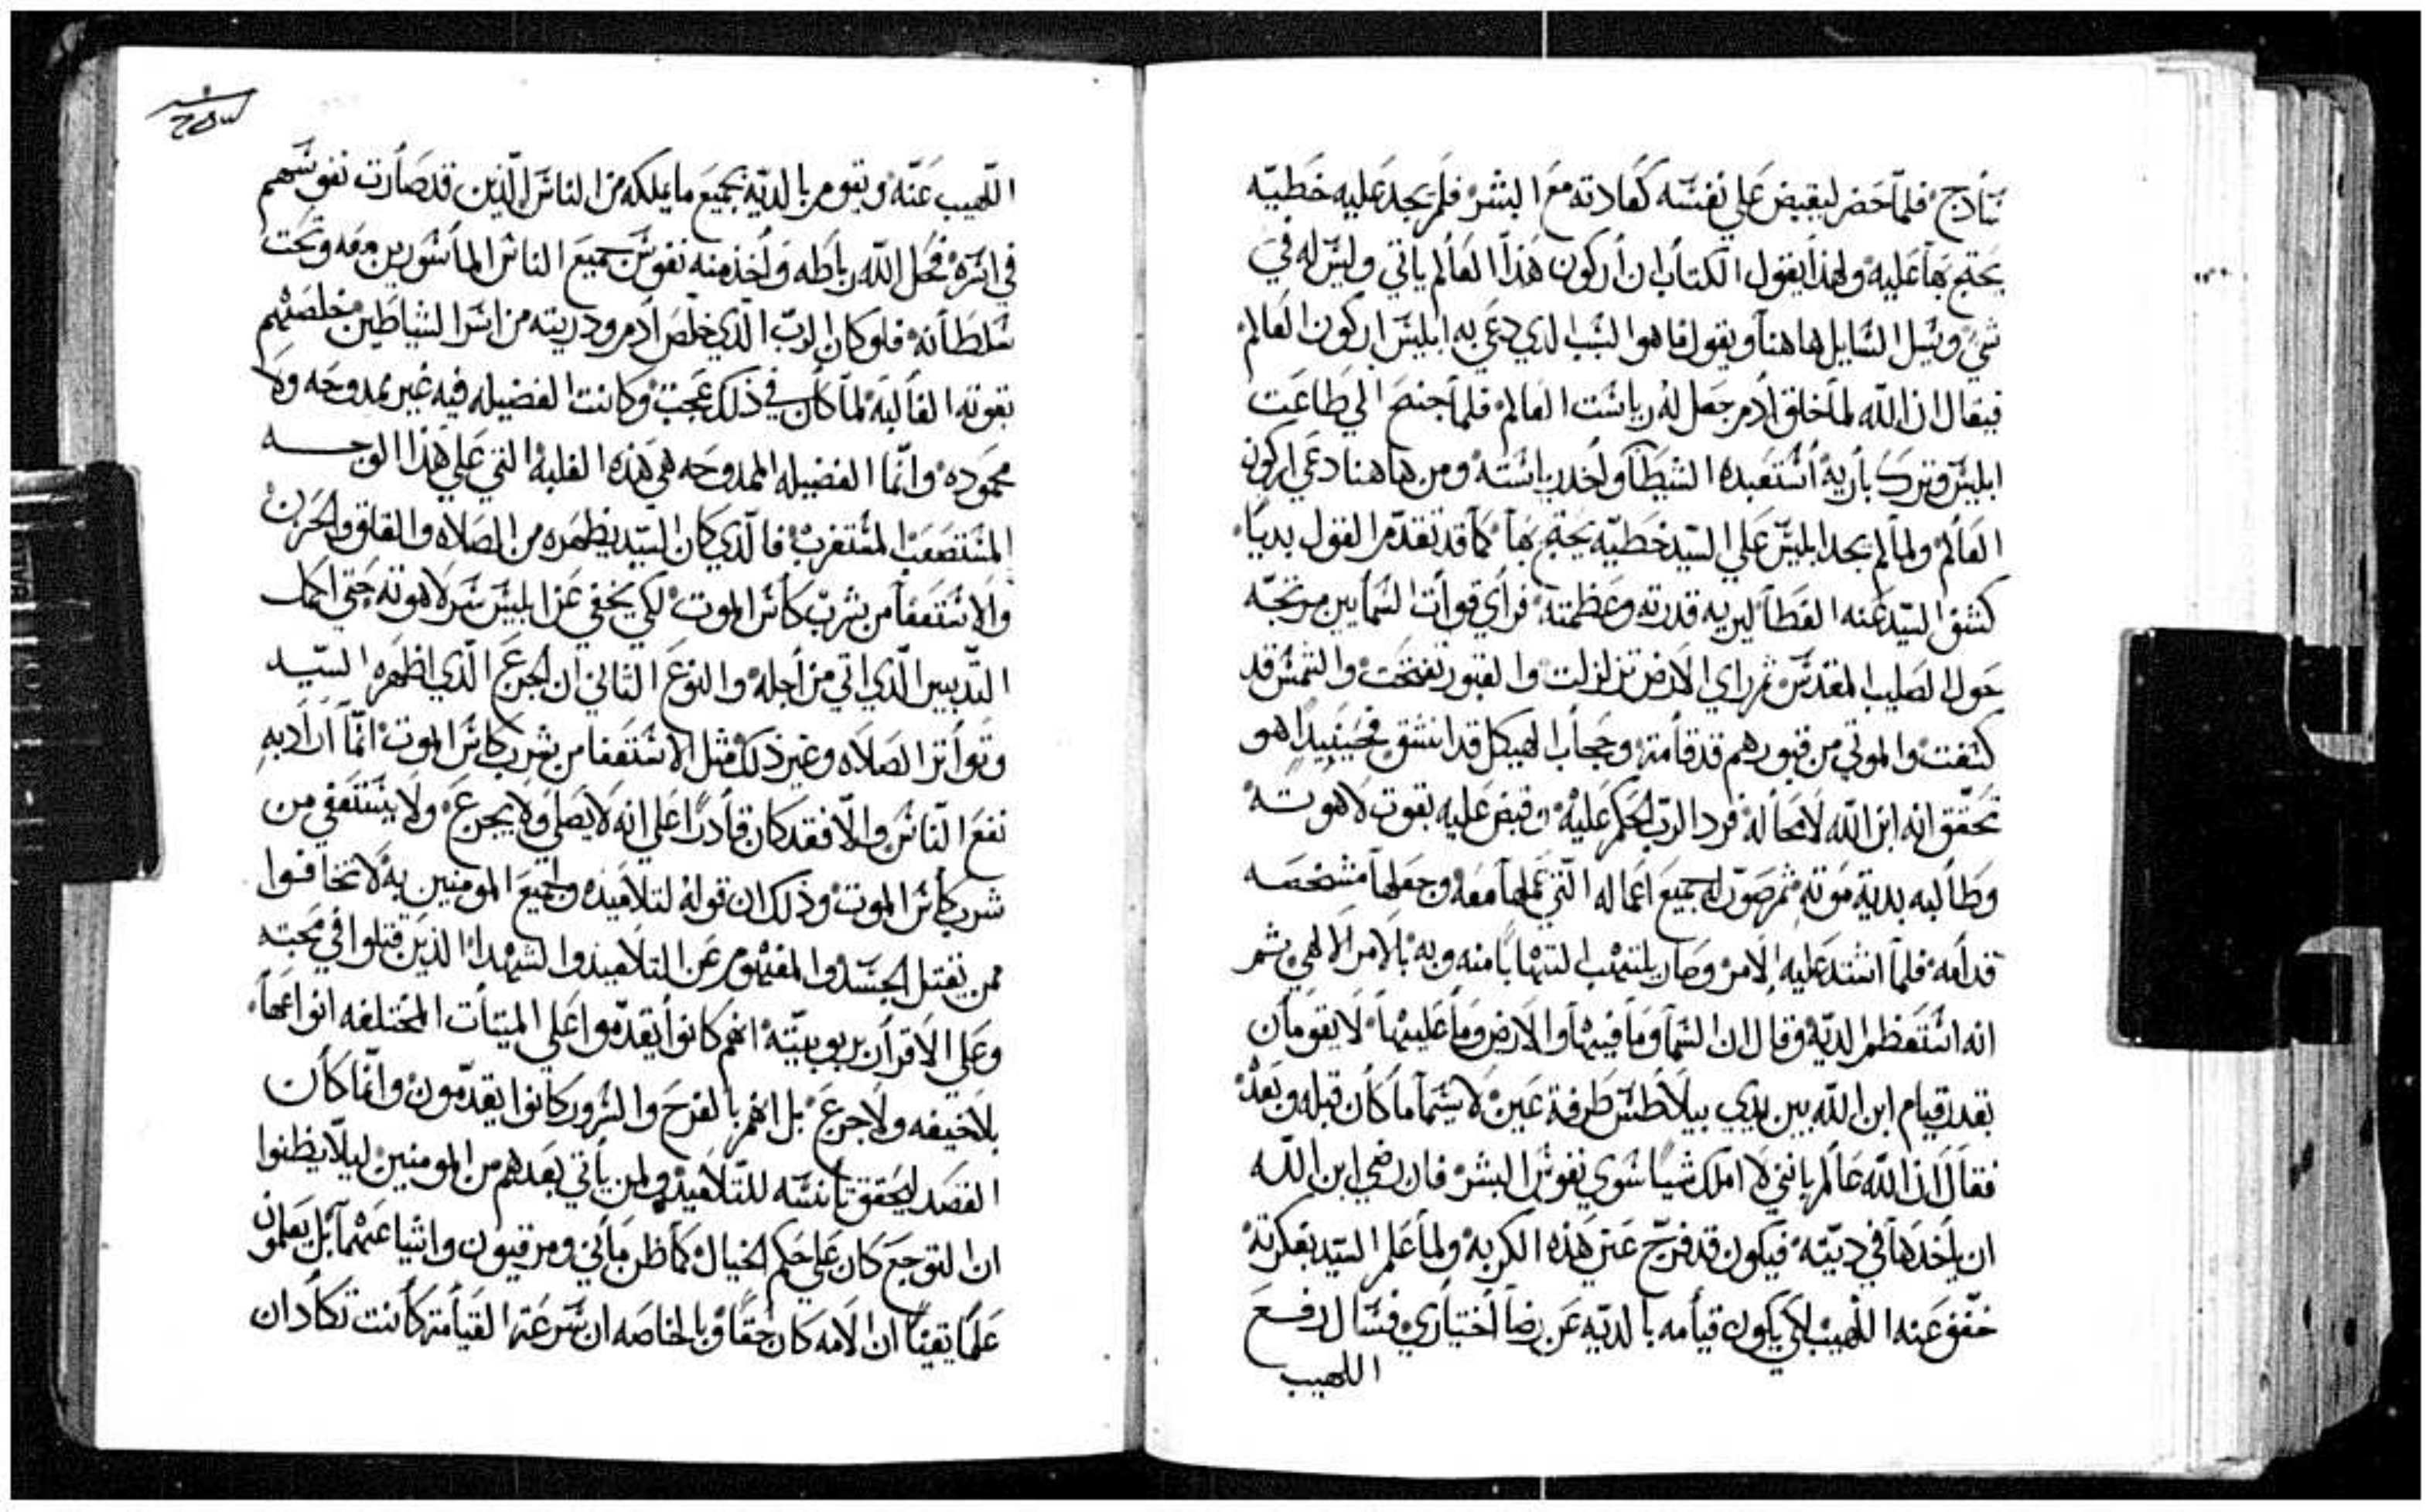 سادج فلما حضر ليقبض على نفسه كعادته مع البشر فلم يجد عليه خطيه
يحتج بها عليه ولهذا يقول الكتاب ان اركون هذا العالم ياتي وليس له في
شي ويسل السايل هاهنا ويقول ما هو السبب الدي دعي به ابليس اركون العالم
فيقال ان الله لما خلق ادم جعل له رياست العالم فلما جنح الي طاعت
ابليس وترك باريه استعبده الشيطان واخد رياسته ومن هاهنا دعي اركون
العالم ولما لم يجد ابليس علي السيد خطيه يحتج بها كما قد تقدم القول بديا
كشف السيد عنه الغطا ليريه قدرته وعظمته فراي قوات السمايين مرتجه
حول الصليب المقدس ثم راي الارض تزلزلت والقبور تفتحت والشمس قد
كسفت والموتي من قبورهم قد قامة وحجاب الهيكل قد انشق فحينيدا هو
تحقق انه ابن الله لا محاله فرد الرب الحكم عليه وقبض عليه بقوت لاهوته
وطالبه بدية موته ثم صور له جميع اعماله التي عملها معه وجعلها مشخصه
قدامه فلما اشتد عليه الامر وصار يلتهب التهابا منه وبه بالامر الالهي ثم
انه استعظم الديه وقال ان السما وما فيها والارض وما عليها لا يقومان
بقدر قيام ابن الله بين يدي بيلاطس طرفة عين لا سيما ما كان قبله وبعده
فقال ان الله عالم بانني لا املك شيا سوي نفوس البشر فان رضي ابن الله
ان ياخدها في ديته فيكون قد فرج عني هذه الكربه ولما علم السيد بفكرته
خفف عنه اللهيب لكي يكون قيامه بالديه عن رضا اختياري فسال رفع
اللهيب
اللهيب عنه ويقوم بالديه بجميع ما يملكه من الناس الذين قد صارت نفوسهم
في اسره فحل الله رباطه واخذ منه نفوس جميع الناس الماسورين معه وتحت
سلطانه فلو كان الرب الذي خلص ادم ودريته من اسر الشياطين خلصهم
بقوته الغالبه لما كان في ذلك عجب وكانت الفضيله فيه غير ممدوحه ولا
محموده وانما الفضيله الممدوحه هي هذه الغلبه التي على هذا الوجه
المستصعب المستغرب فالذي كان السيد يظهره من الصلاه والقلق والحزن
والاستعفا من شرب كاس الموت لكي يخفي عن ابليس سر لاهوته حتي اكمل
التدبير الذي اتي من اجله والنوع الثاني ان الجزع الذي اظهره السيد
وتواتر الصلاه وغير ذلك مثل الاستعفا من شرب كاس الموت انما اراد به
نفع الناس والا فقد كان قادرا علي انه لا يصلي ولا يجزع ولا يستعفي من
شرب كاس الموت وذلك ان قوله لتلاميذه ولجميع المومنين به لا تخافوا
ممن يقتل الجسد والمفهوم عن التلاميذ والشهدا الذين قتلوا في محبته
وعلي الاقرار بربوبيته انهم كانوا يقدموا علي الميتات المختلفه انواعها
بلا خيفه ولا جزع بل انهم بالفرح والسرور كانوا يقدمون وانما كان
القصد ليحقق تانسه للتلاميذ ولمن ياتي بعدهم من المومنين ليلا يظنوا
ان التوجع كان علي حكم الخيال كما ظن ماني ومرقيون واشياعهما بل يعلمون
علما يقينا ان الامه كان حقا وبالخاصه ان سرعة القيامة كانت تكاد ان